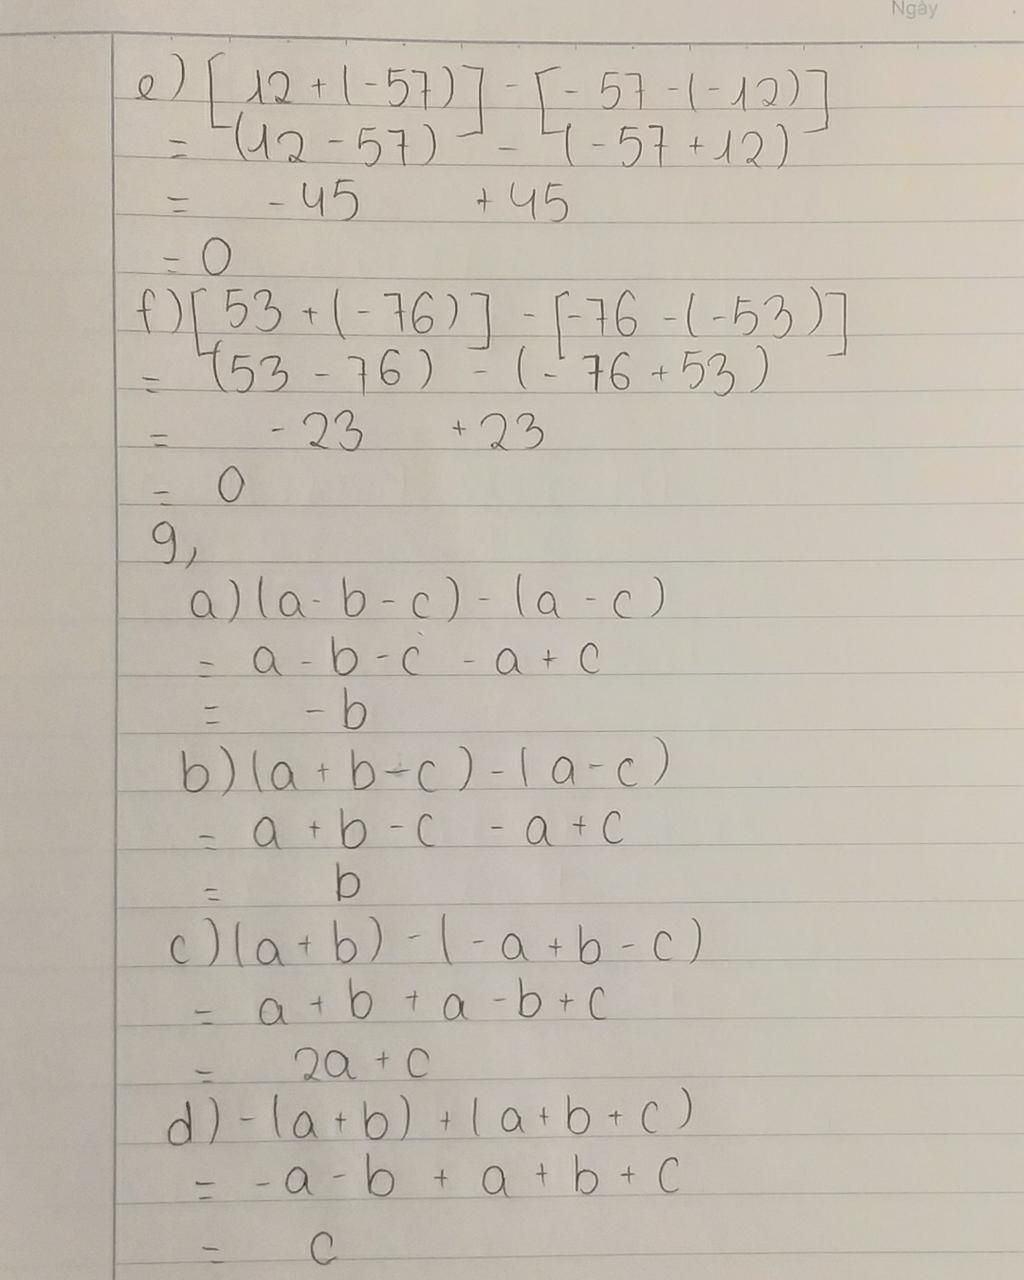 Ngày
e) [12 + (-57)] - [-57 - (-12)]
= (12 - 57) - (-57 + 12)
= -45 + 45
= 0
f) [53 + (-76)] - [-76 - (-53)]
= (53 - 76) - (-76 + 53)
= -23 + 23
= 0
9,
a) (a - b - c) - (a - c)
= a - b - c - a + c
= -b
b) (a + b - c) - (a - c)
= a + b - c - a + c
= b
c) (a + b) - (-a + b - c)
= a + b + a - b + c
= 2a + c
d) -(a + b) + (a + b + c)
= -a - b + a + b + c
= c